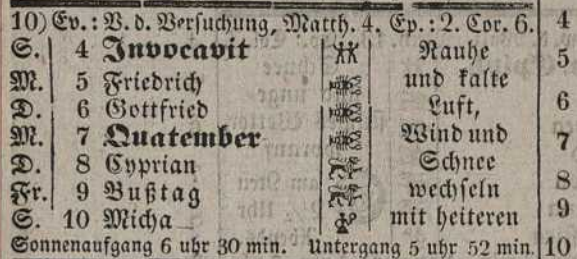 10) Ev.: V. d. Versuchung, Matth. 4. Ep.: 2. Cor. 6. 4
S. 4 Invocavit Rauhe 5
M. 5 Friedrich und kalte
D. 6 Gottfried Luft, 6
M. 7 Quatember Wind und 7
D. 8 Cyprian Schnee 8
Fr. 9 Bußtag wechseln
S. 10 Micha mit heiteren 9
Sonnenaufgang 6 uhr 30 min. Untergang 5 uhr 52 min. 10